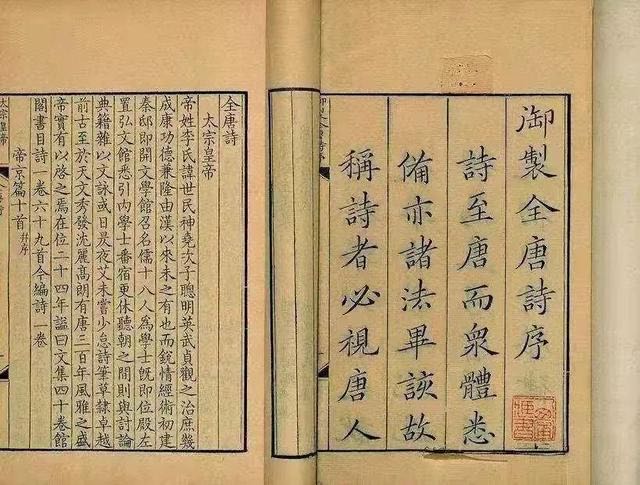 御製全唐詩序
詩至唐而衆體悉
備亦諸法畢該故
稱詩者必視唐人
全唐詩
太宗皇帝
帝姓李氏諱世民神堯次子聰明英武貞觀之治庶幾
成康功德兼隆由漢以來未之有也而銳情經術初建
秦邸即開文學館召名儒十八人為學士既即位殿左
置弘文館悉引內學士番宿更休聽朝之間則與討論
典籍雜以文詠或日昃夜艾未嘗少怠詩筆草隸卓越
前古至於天文秀發沈麗高朗有唐三百年風雅之盛
帝實有以啓之焉在位二十四年諡曰文集四十卷館
閣書目詩一卷六十九首今編詩一卷
帝京篇十首并序
太宗皇帝